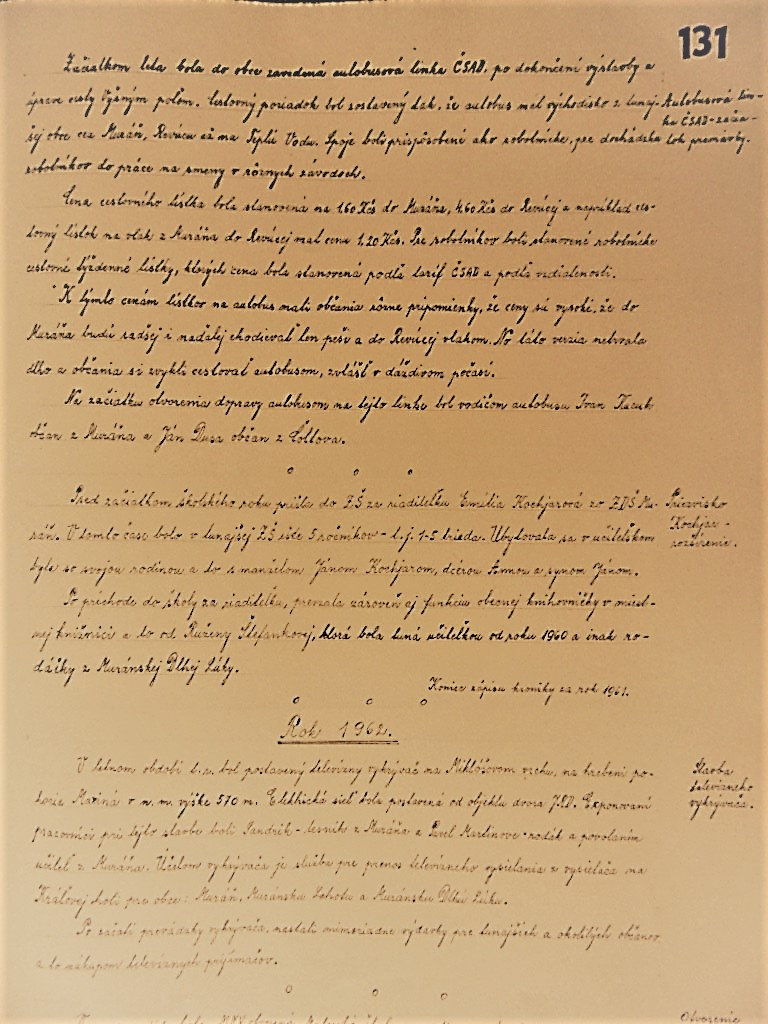 131
Začiatkom leta bola do obce zavedená autobusová linka ČSAD, po dokončení výstavby a
úprave cesty Vyšným poľom. Cestovný poriadok bol zostavený tak, že autobus mal východisko z tunaj-
šej obce cez Muráň, Revúcu až na Teplú Vodu. Spoje boli prispôsobené ako robotnícke, pre dochádzka
robotníkov do práce na smeny v rôznych závodoch.
Autobusová lin-
ka ČSAD-začia-
tok premávky.
Cena cestovného lístka bola stanovená na 1,60 Kčs do Muráňa, 4,60 Kčs do Revúcej a napríklad ces-
tovný lístok na vlak z Muráňa do Revúcej mal cenu 1,20 Kčs. Pre robotníkov boli stanovené robotnícke
cestovné týždenné lístky, ktorých cena bola stanovená podľa taríf ČSAD a podľa vzdialenosti.
K týmto cenám lístkov na autobus mali občania rôzne pripomienky, že ceny sú vysoké, že do
Muráňa budú radšej i naďalej chodievať len peši a do Revúcej vlakom. No táto verzia netrvala
dlho a občania si zvykli cestovať autobusom, zvlášť v daždivom počasí.
Na začiatku otvorenia dopravy autobusom na tejto linke bol vodičom autobusu Ivan
občan z Muráňa a Ján Dusa občan z Čoltova.
Pred začiatkom školského roku prišla do ZŠ za riaditeľku Emília Kochjarová zo ZDŠ Mu-
ráň. V tomto čase bolo v tunajšej ZŠ ešte 5 ročníkov - t. j. 1-5 trieda. Ubytovala sa v učiteľskom
byte so svojou rodinou a to s manželom Jánom Kochjarom, dcérou Annou a synom Jánom.
Priezvisko
Kochjar -
rozšírenie.
Po príchode do školy za riaditeľku, prevzala zároveň aj funkciu obecnej knihovníčky v miest-
nej knižnici a to od Ruženy Štefankovej, ktorá bola tuná učiteľkou od roku 1960 a inak ro-
dáčky z Muránskej Dlhej Lúky.
Koniec zápisu kroniky za rok 1961.
Rok 1962.
V letnom období t. r. bol postavený televízny vykrývač na Miklóšovom vrchu, na hrebeni po-
horia Matiná v n. m. výške 570 m. Elektrická sieť bola postavená od objektu dvora JRD. Exponovaní
pracovníci pri tejto stavbe boli Jandrík - lesník z Muráňa a Pavel Martinove - rodák a povolaním
učiteľ z Muráňa. Účelom vykrývača je služba pre prenos televízneho vysielania z vysielača na
Kráľovej holi pre obce: Muráň, Muránsku Lehotu a Muránsku Dlhú Lúku.
Stavba
televízneho
vykrývača.
Po začatí prevádzky vykrývača, nastali mimoriadne výdavky pre tunajších a okolitých občanov
a to nákupom televíznych prijímačov.
Otvorenie